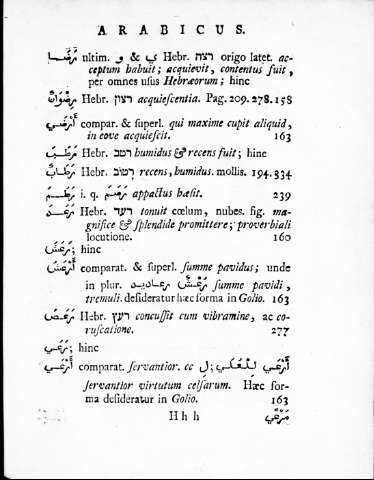 ARABICUS.
ultim. و & ي Hebr. רצה origo latet. ac-
ceptum habuit; acquievit, contentus fuit,
per omnes usus Hebræorum; hinc
رِضْوَانٌ Hebr. רצון acquiescentia. Pag. 209. 278. 158
أَرْضَي compar. & superl. qui maxime cupit aliquid,
in eove acquiescit. 163
رَطُبَ Hebr. רטב humidus & recens fuit; hinc
Hebr. רטוב recens, humidus. mollis. 194. 334
i. q. appactus hæsit. 239
رَعَدَ Hebr. רעד tonuit cœlum, nubes. fig. ma-
gnifice & splendide promittere; proverbiali
locutione. 160
رَعَشَ; hinc
أَرْعَشُ comparat. & superl. summe pavidus; unde
in plur. summe pavidi,
tremuli. desideratur hæc forma in Golio. 163
Hebr. רעץ concussit cum vibramine, ac co-
ruscatione. 277
رَعَي; hinc
أَرْعَي comparat. servantior. cc لِ; أَرْعَي لِلْعُلَي
servantior virtutum celsarum. Hæc for-
ma desideratur in Golio. 163
Hhh